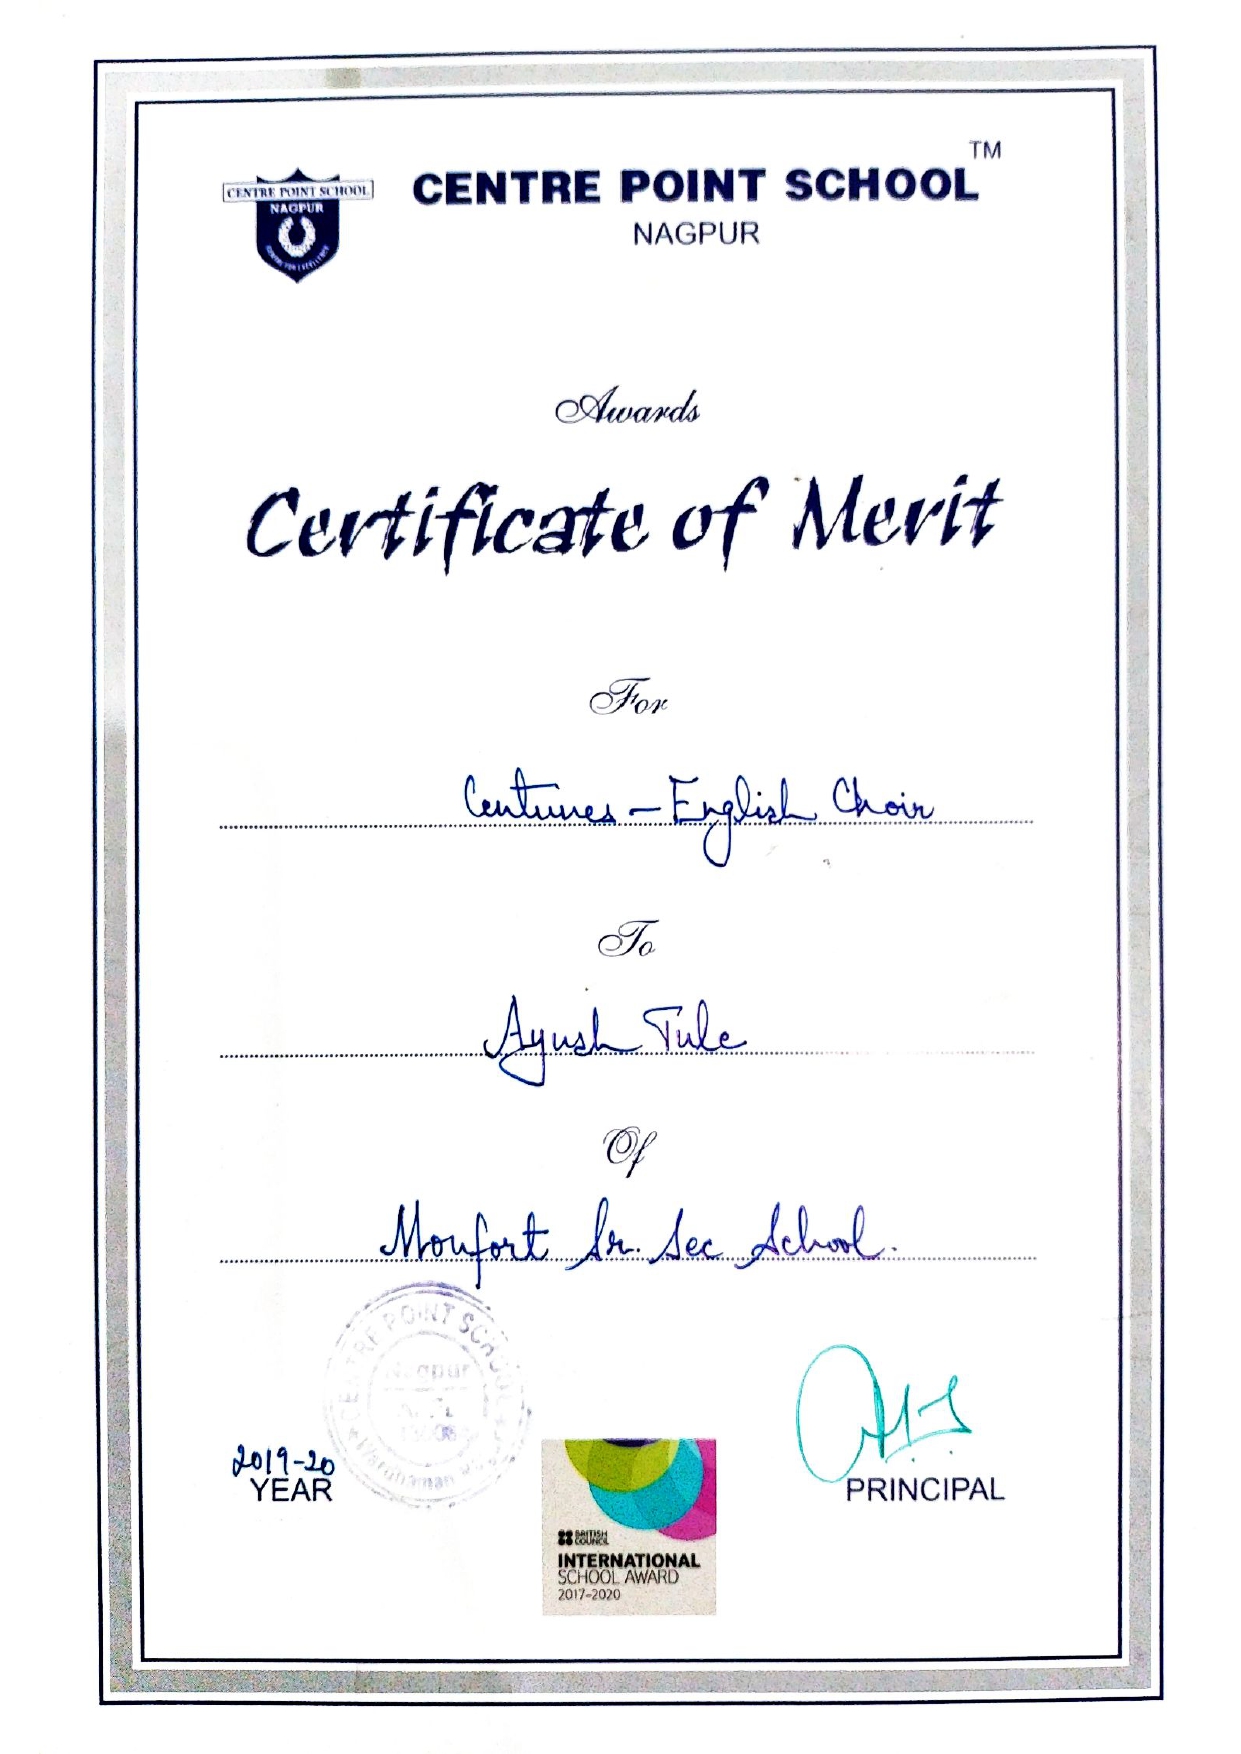 CENTRE POINT SCHOOL
NAGPUR
CENTRE FOR EXCELLENCE
CENTRE POINT SCHOOL TM
NAGPUR
Awards
Certificate of Merit
For
Centunes - English Choir
To
Ayush Tule
Of
Monfort Sr. Sec School.
CENTRE POINT SCHOOL
Nagpur
2019-20
YEAR
PRINCIPAL
BRITISH COUNCIL
INTERNATIONAL
SCHOOL AWARD
2017-2020